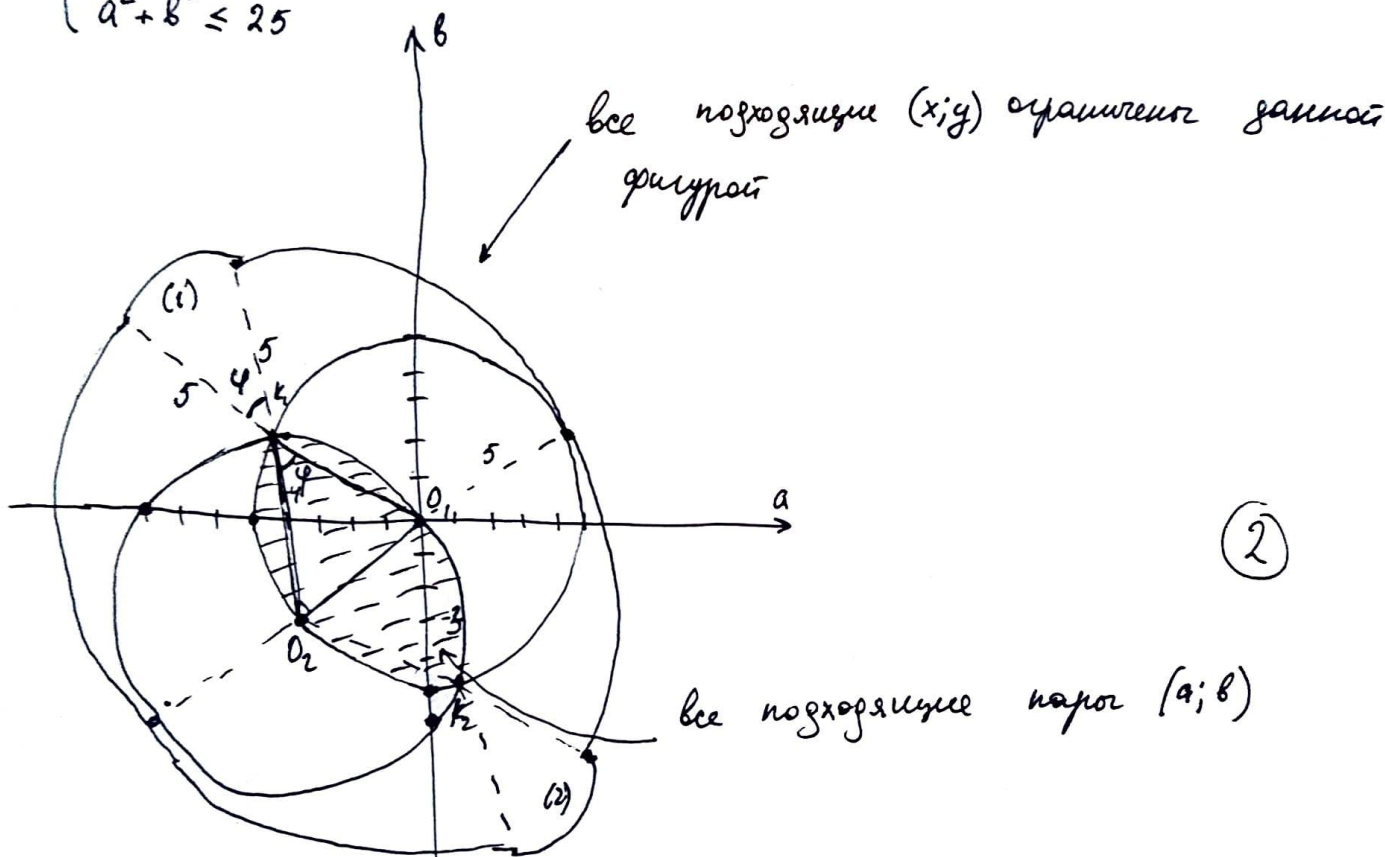 a² + b² ≤ 25
в
все подходящие (x; y) ограничены данной
фигурой
(1)
5
5
φ
K₁
5
φ
O₁
a
②
3
O₂
K₂
все подходящие пары (a; в)
(2)